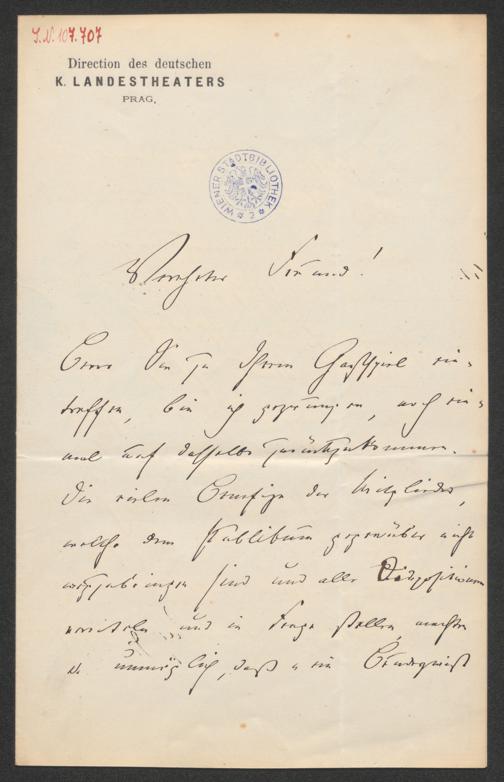 J.N. 107.707
Direction des deutschen
K. LANDESTHEATERS
PRAG.
WIENER STADTBIBLIOTHEK
Verehrter Freund!
Bevor Sie zu Ihrem Gastspiel ein-
treffen, bin ich gezwungen, noch ein-
mal auf dasselbe zurückzukommen.
Die vielen Benefize der Mitglieder,
welche dem Publikum gegenüber nicht
wegzubringen sind und alle Dispositionen
vereiteln und in Frage stellen, machten
es unmöglich, daß ein